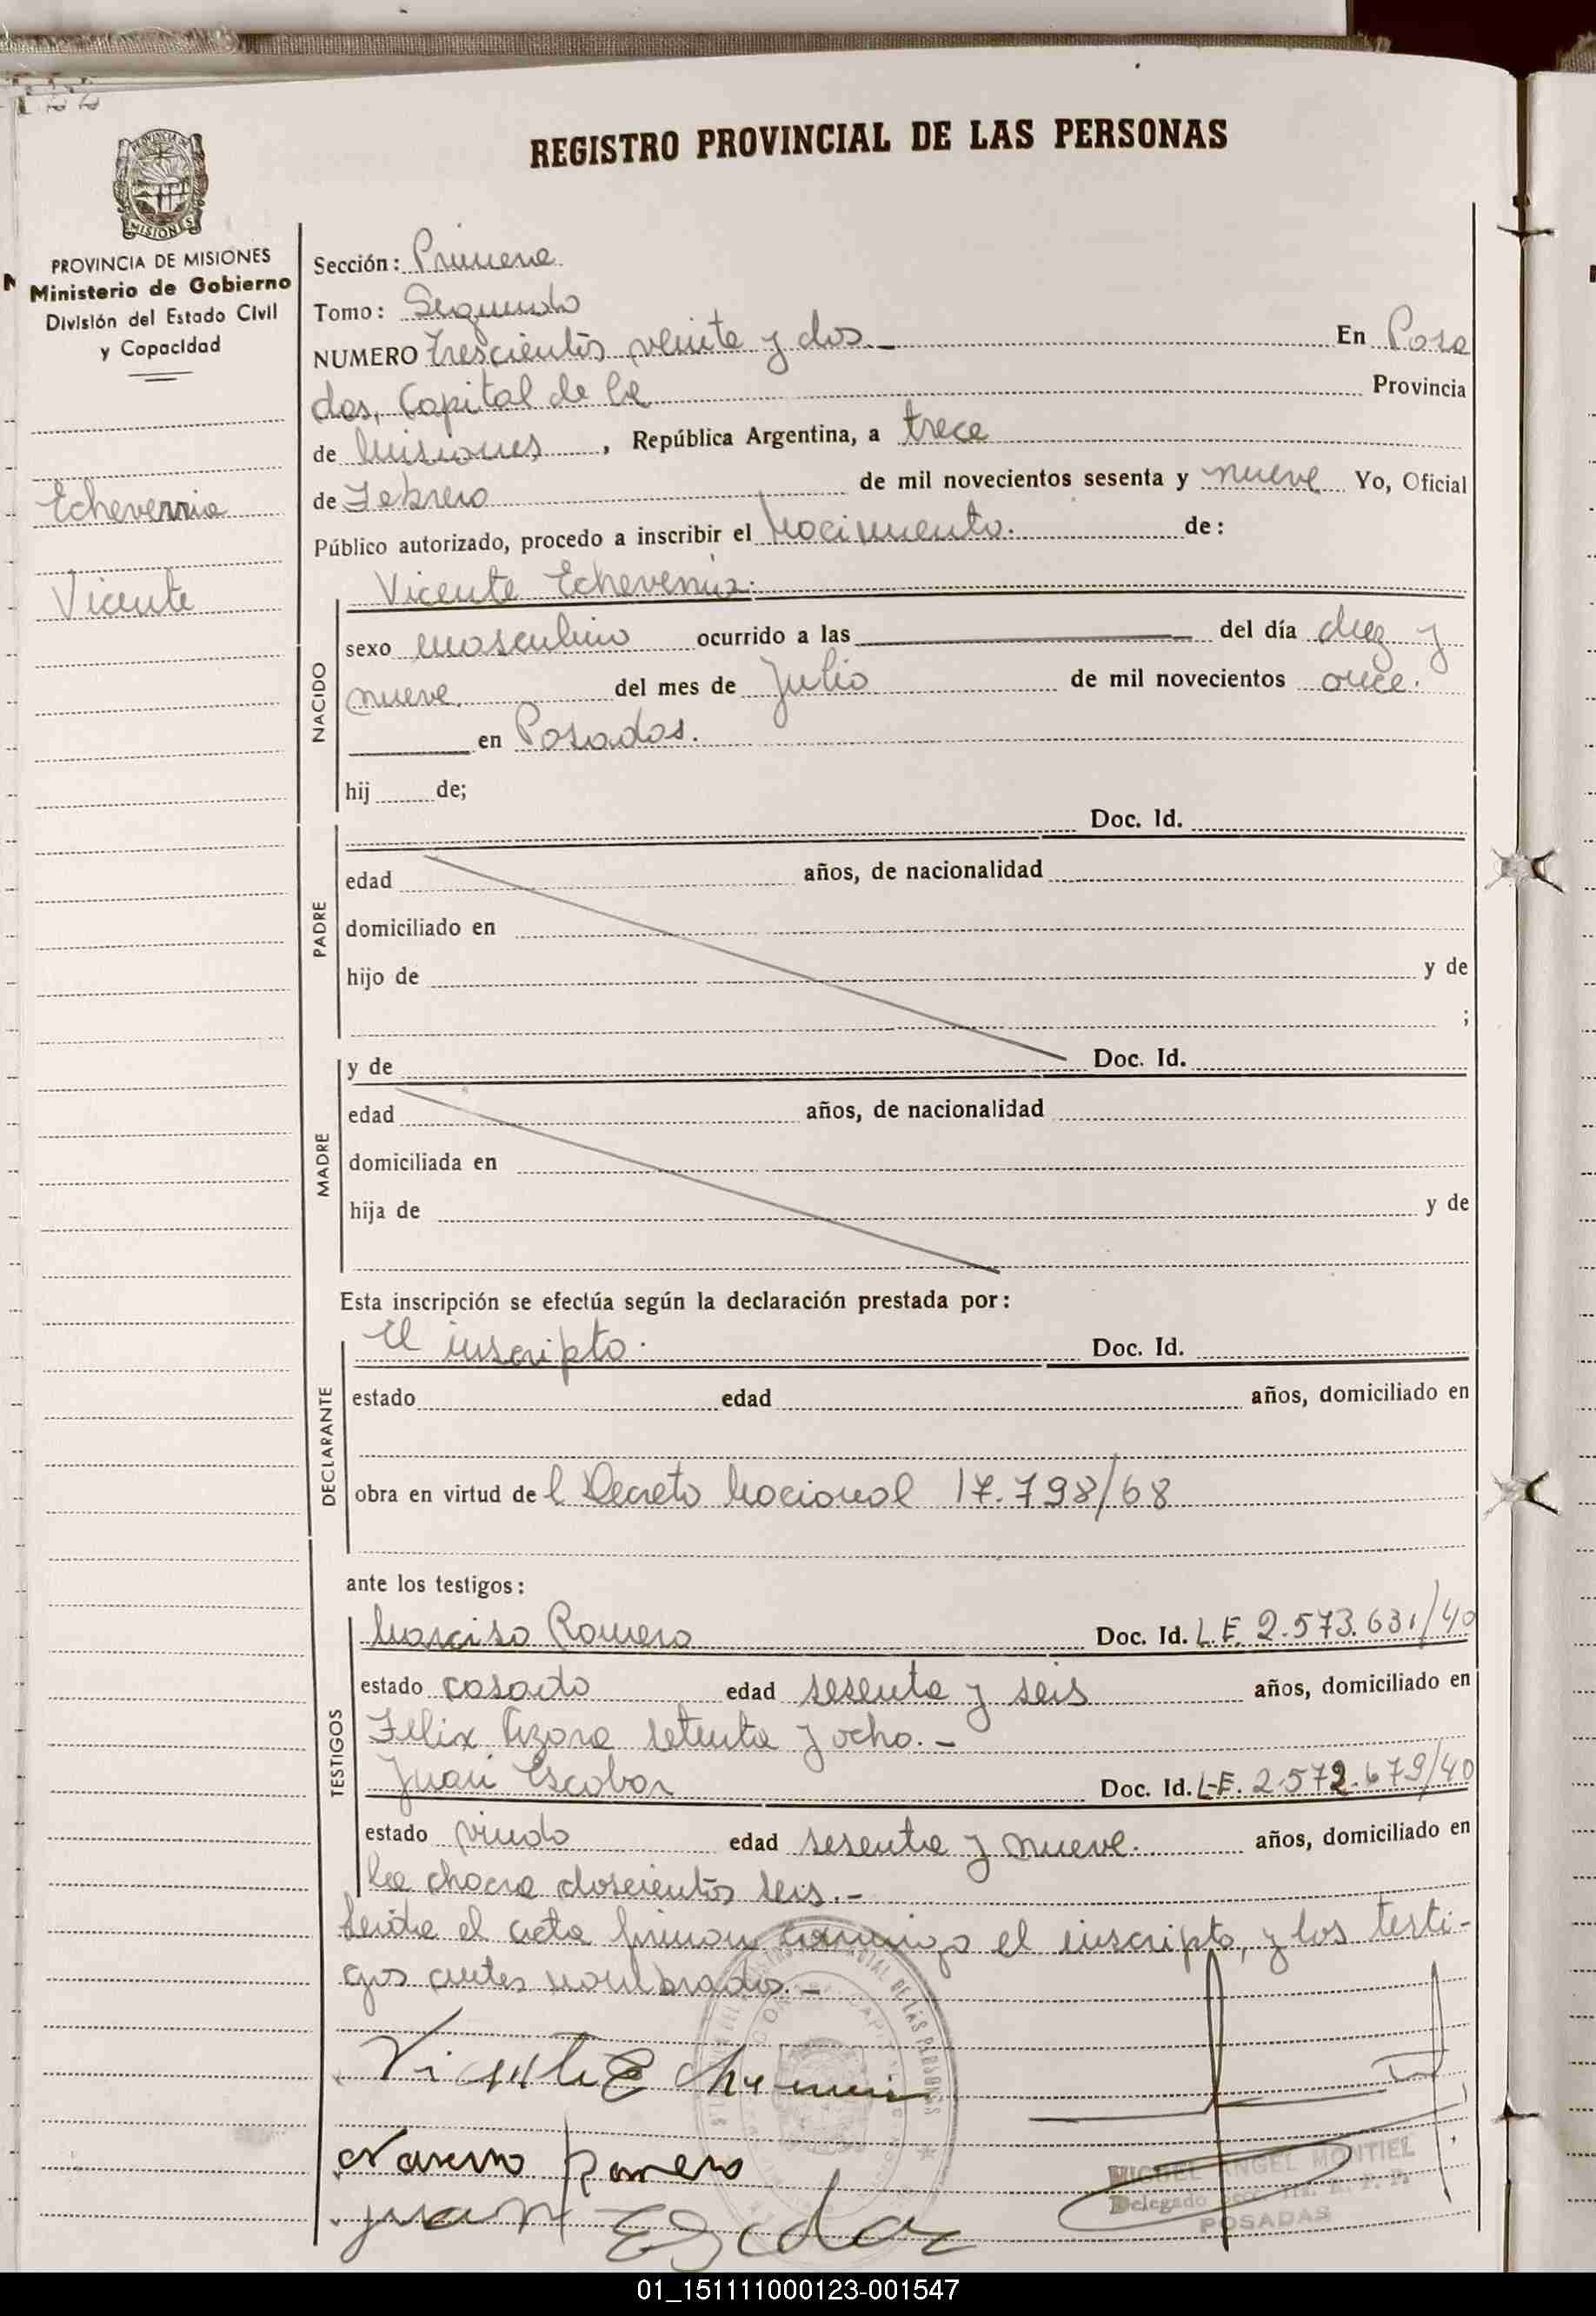 REGISTRO PROVINCIAL DE LAS PERSONAS
PROVINCIA DE MISIONES
Ministerio de Gobierno
División del Estado Civil
y Capacidad
Echeverria
Vicente
Sección: Primera
Tomo: Segundo
NUMERO trescientos veinte y dos._ En Posa
das, Capital de la Provincia
de Misiones, República Argentina, a trece
de Febrero de mil novecientos sesenta y nueve Yo, Oficial
Público autorizado, procedo a inscribir el Nacimiento. de:
Vicente Echeverria.
NACIDO
sexo masculino ocurrido a las del día diez y
nueve. del mes de Julio de mil novecientos once.
en Posadas.
hij de;
PADRE
Doc. Id.
edad años, de nacionalidad
domiciliado en
hijo de y de
;
MADRE
y de Doc. Id.
edad años, de nacionalidad
domiciliada en
hija de y de
Esta inscripción se efectúa según la declaración prestada por:
DECLARANTE
El inscripto. Doc. Id.
estado edad años, domiciliado en
obra en virtud de l Decreto Nacional 17.798/68
ante los testigos:
TESTIGOS
Narciso Romero Doc. Id. L.E. 2.573.631/40
estado casado edad sesenta y seis años, domiciliado en
Felix Azara setenta y ocho.-
Juan Escobar Doc. Id. L-E. 2.572.679/40
estado viudo edad sesenta y nueve. años, domiciliado en
la chacra doscientos seis.-
Leida el acta firman conmigo el inscripto, y los testi-
gos antes nombrados.-
Vicente Echeverria
Narciso Romero
Juan Escobar
MIGUEL ANGEL MONTIEL
Delegado
POSADAS
01_151111000123-001547